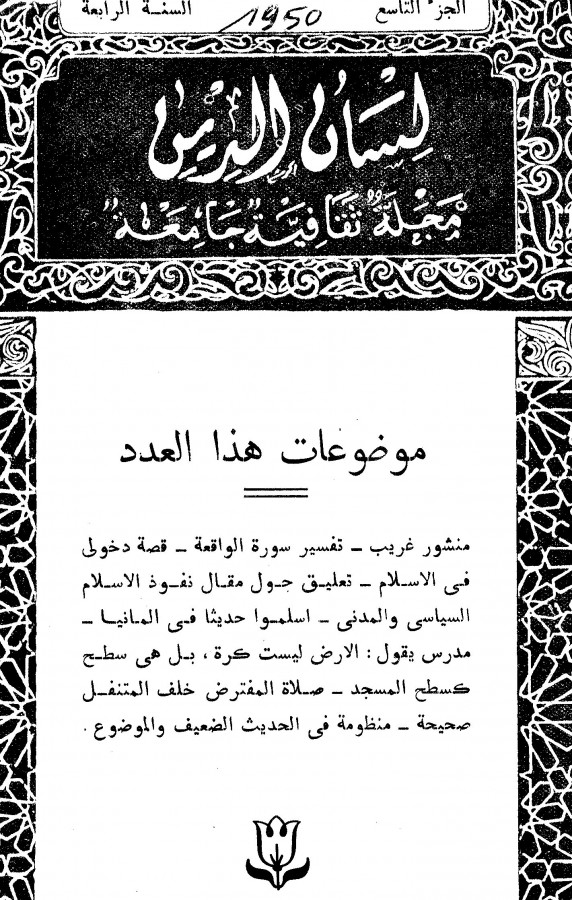 الجزء التاسع
1950
السنة الرابعة
لسان الدين
"مجلة" ثقافية "جامعة"
موضوعات هذا العدد
منشور غريب – تفسير سورة الواقعة – قصة دخولى
فى الاسلام – تعليق حول مقال نفوذ الاسلام
السياسى والمدنى – اسلموا حديثا فى المانيا –
مدرس يقول : الارض ليست كرة ، بل هى سطح
كسطح المسجد – صلاة المفترض خلف المتنفل
صحيحة – منظومة فى الحديث الضعيف والموضوع .